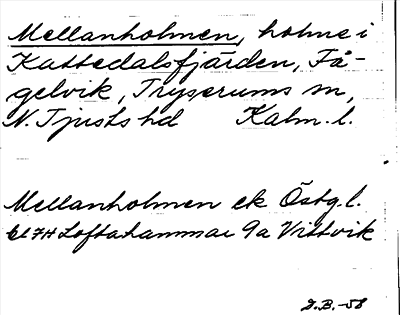 Mellanholmen, holme i
Kattedalsfjärden, Få-
gelvik, Tryserums sn,
N. Tjusts hd Kalm. l.
Mellanholmen ek Östg. l.
bl 7H Loftahammar 9a Vittvik
J.B.-58